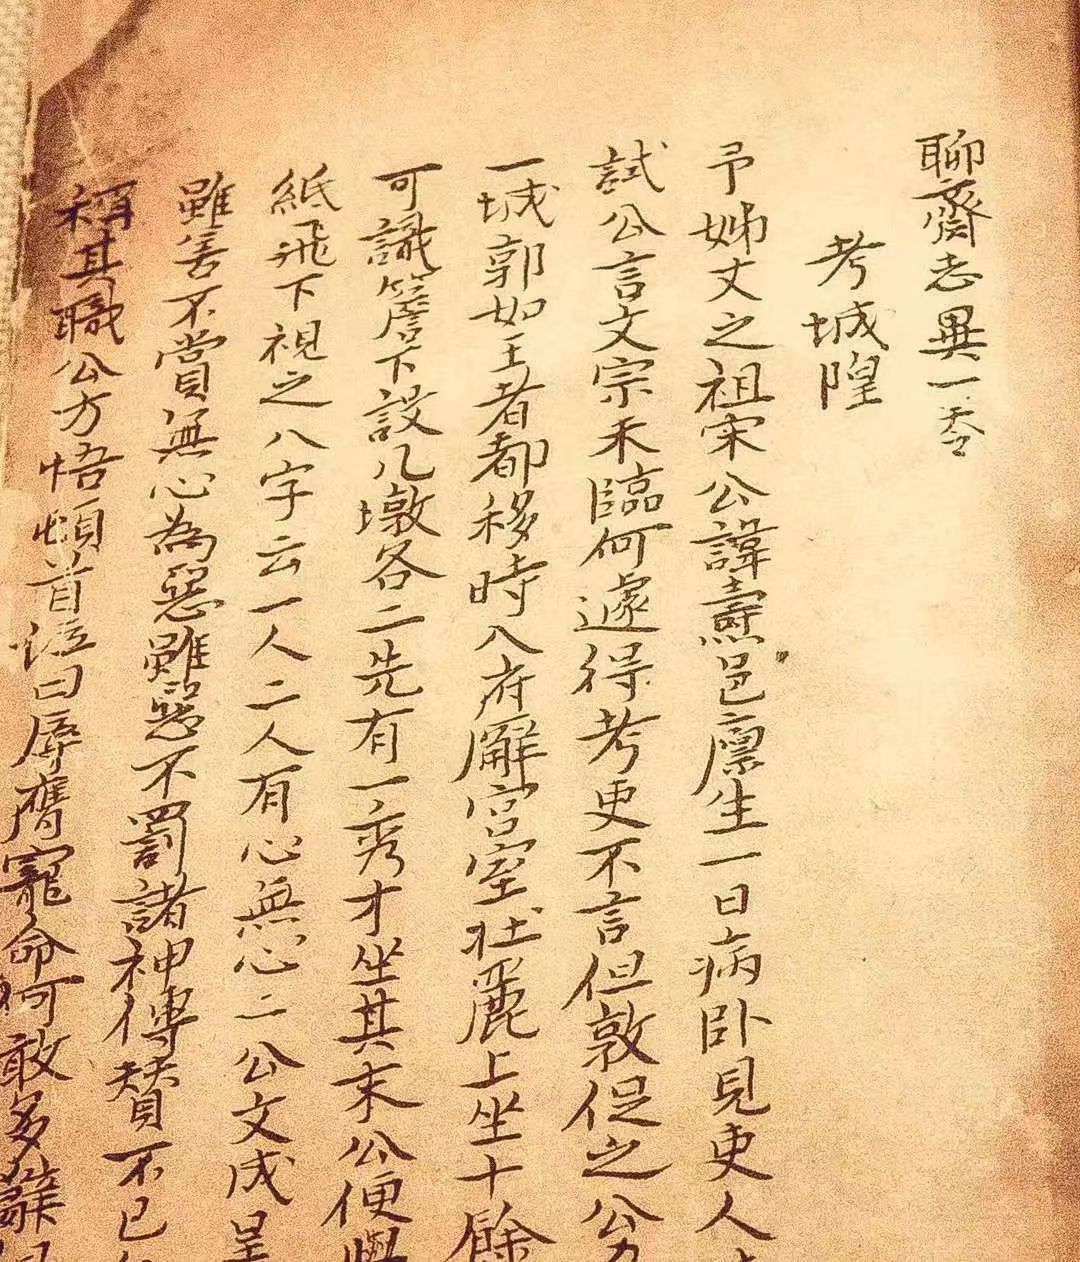 聊齋志異一卷
考城隍
予姊丈之祖宋公諱燾邑廪生一日病卧見吏人
試公言文宗未臨何遽得考吏不言但敦促之公
一城郭如王者都移時入府廨宫室壮麗上坐十餘
可識簷下設几墩各二先有一秀才坐其末公便與
紙飛下視之八字云一人二人有心無心二公文成呈
雖善不賞無心為惡雖惡不罰諸神傳賛不已
稱其職公方悟頓首泣曰辱膺寵命何敢多辭